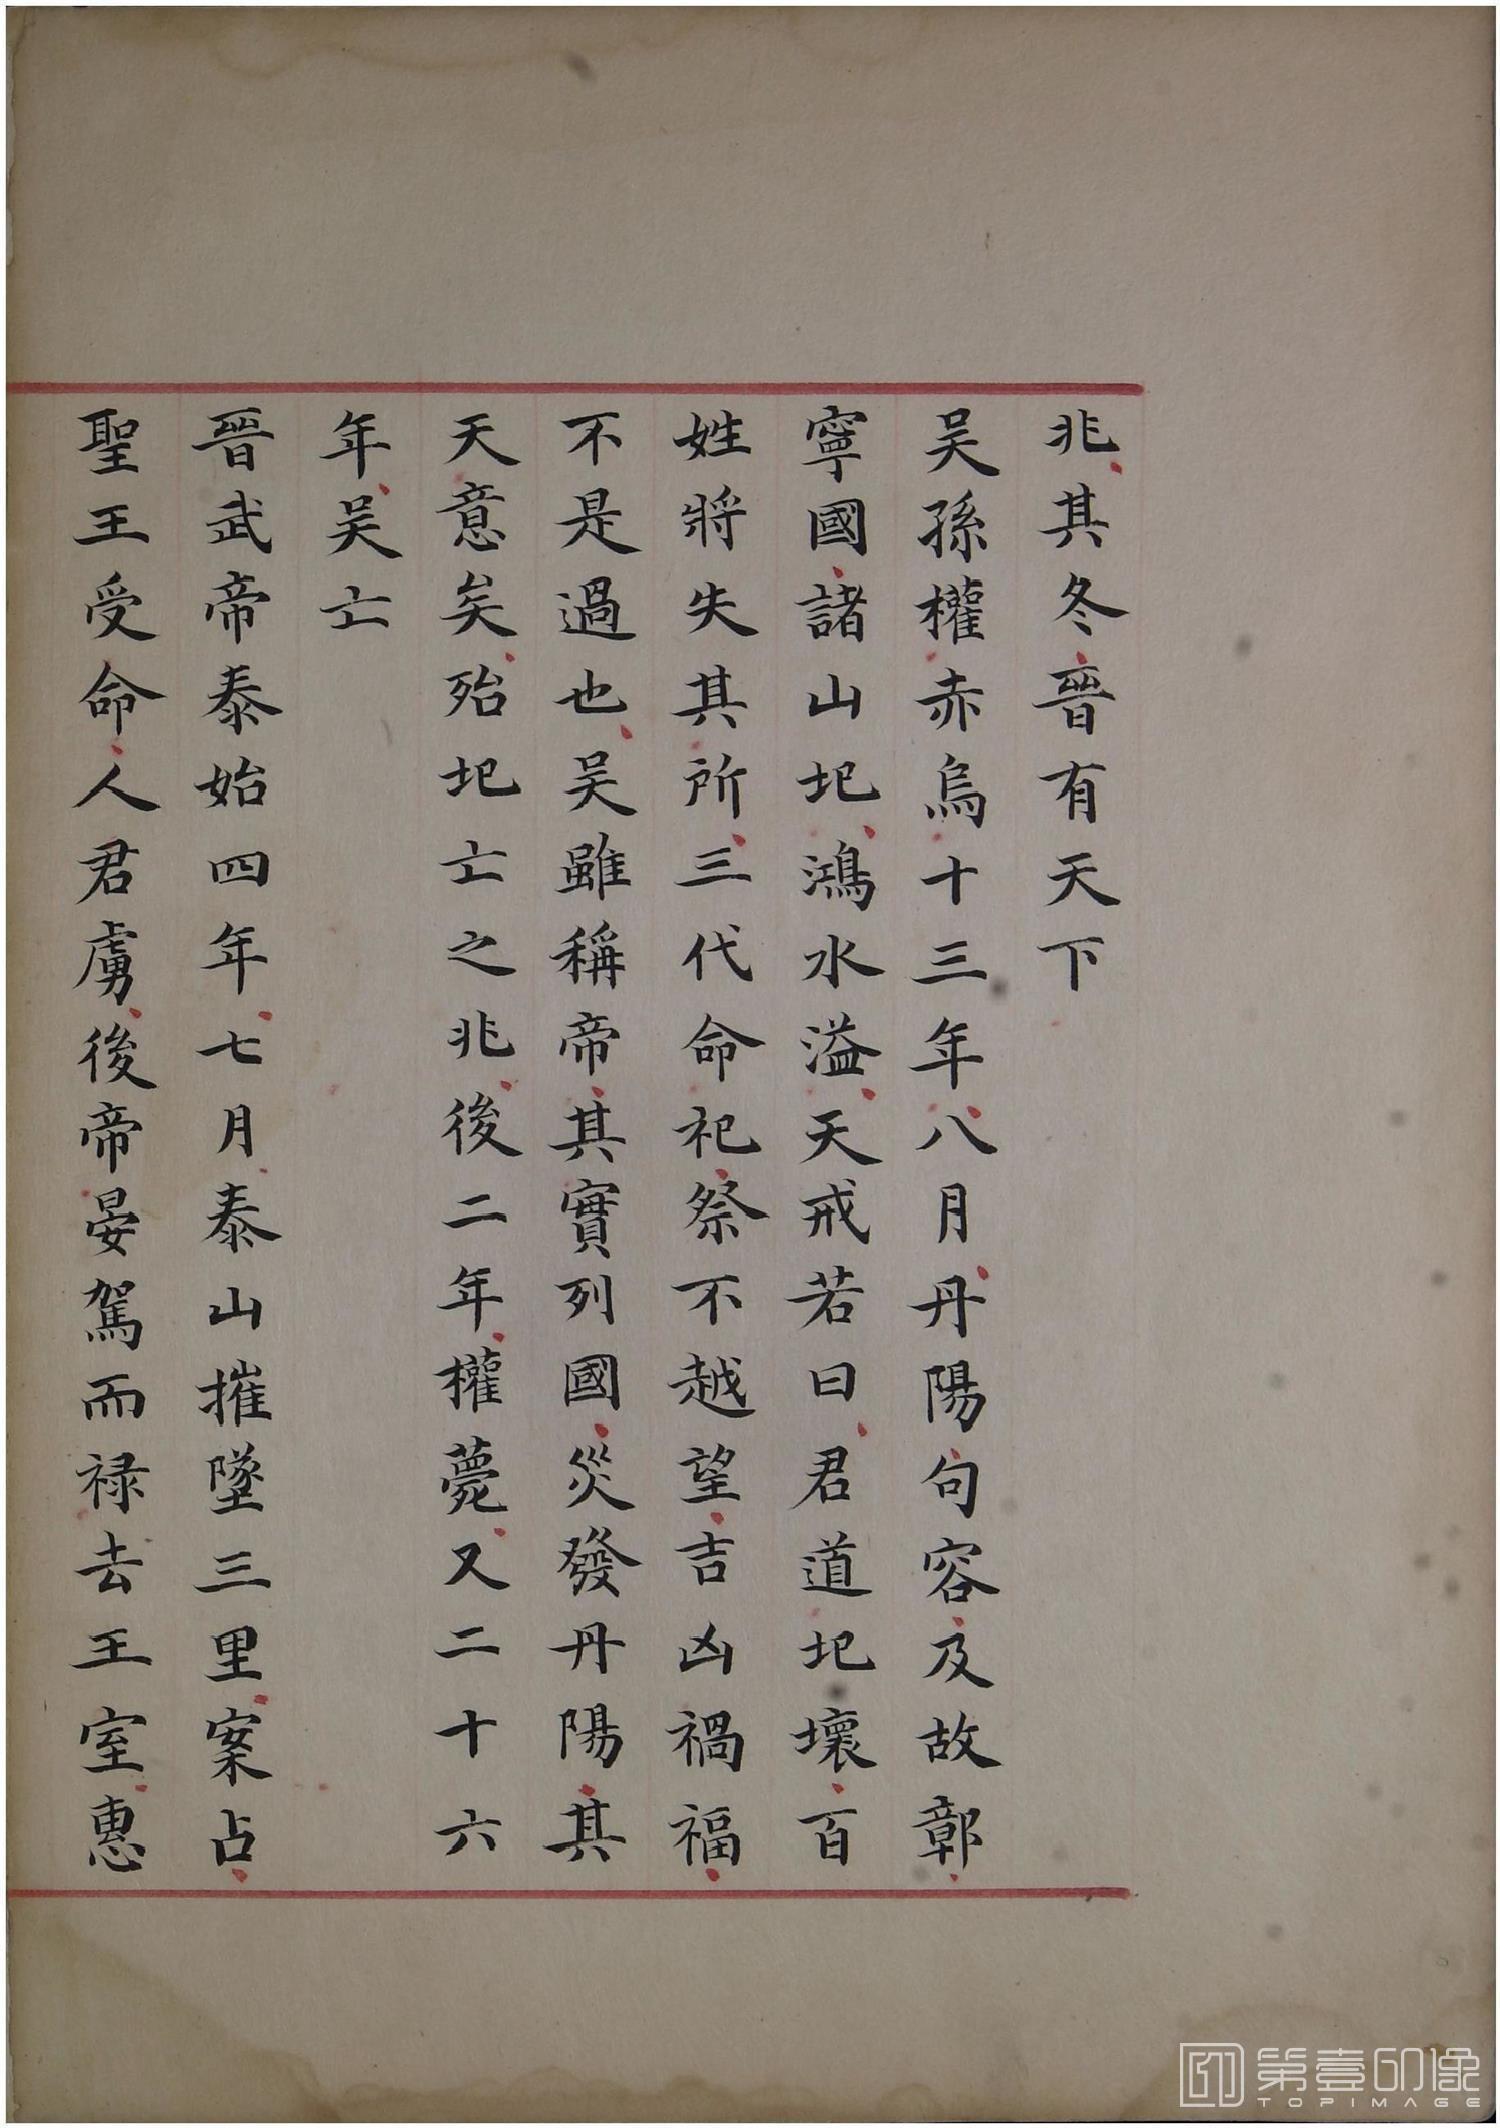 兆其冬晉有天下
吴孫權赤烏十三年八月丹陽句容及故鄣
寧國諸山圮鴻水溢天戒若曰君道圮壞百
姓將失其所三代命祀祭不越望吉凶禍福
不是過也吴雖稱帝其實列國災發丹陽其
天意矣殆圮亡之兆後二年權薨又二十六
年吴亡
晉武帝泰始四年七月泰山摧墜三里案占
聖王受命人君虜後帝晏駕而禄去王室惠
第壹印像
TOPIMAGE